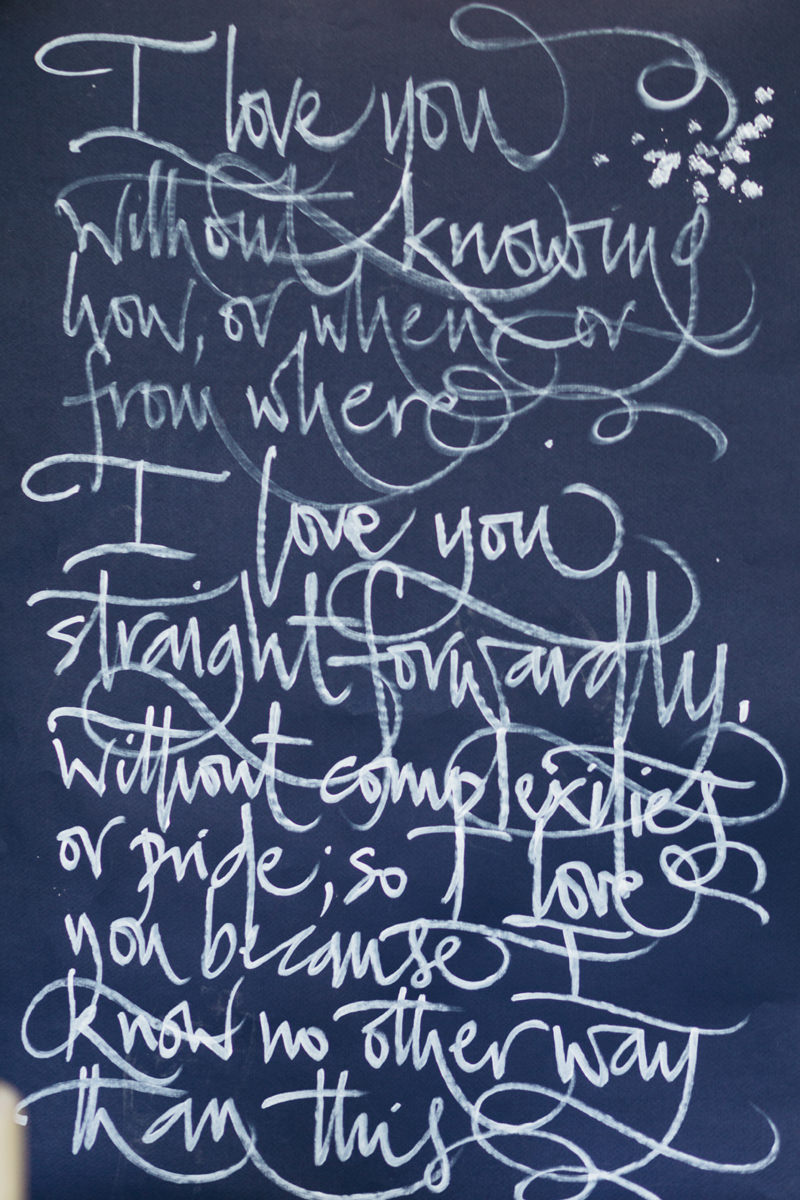 I love you
without knowing
how, or when or
from where
I love you
straight forwardly,
without complexities
or pride; so I love
you because I
know no other way
than this